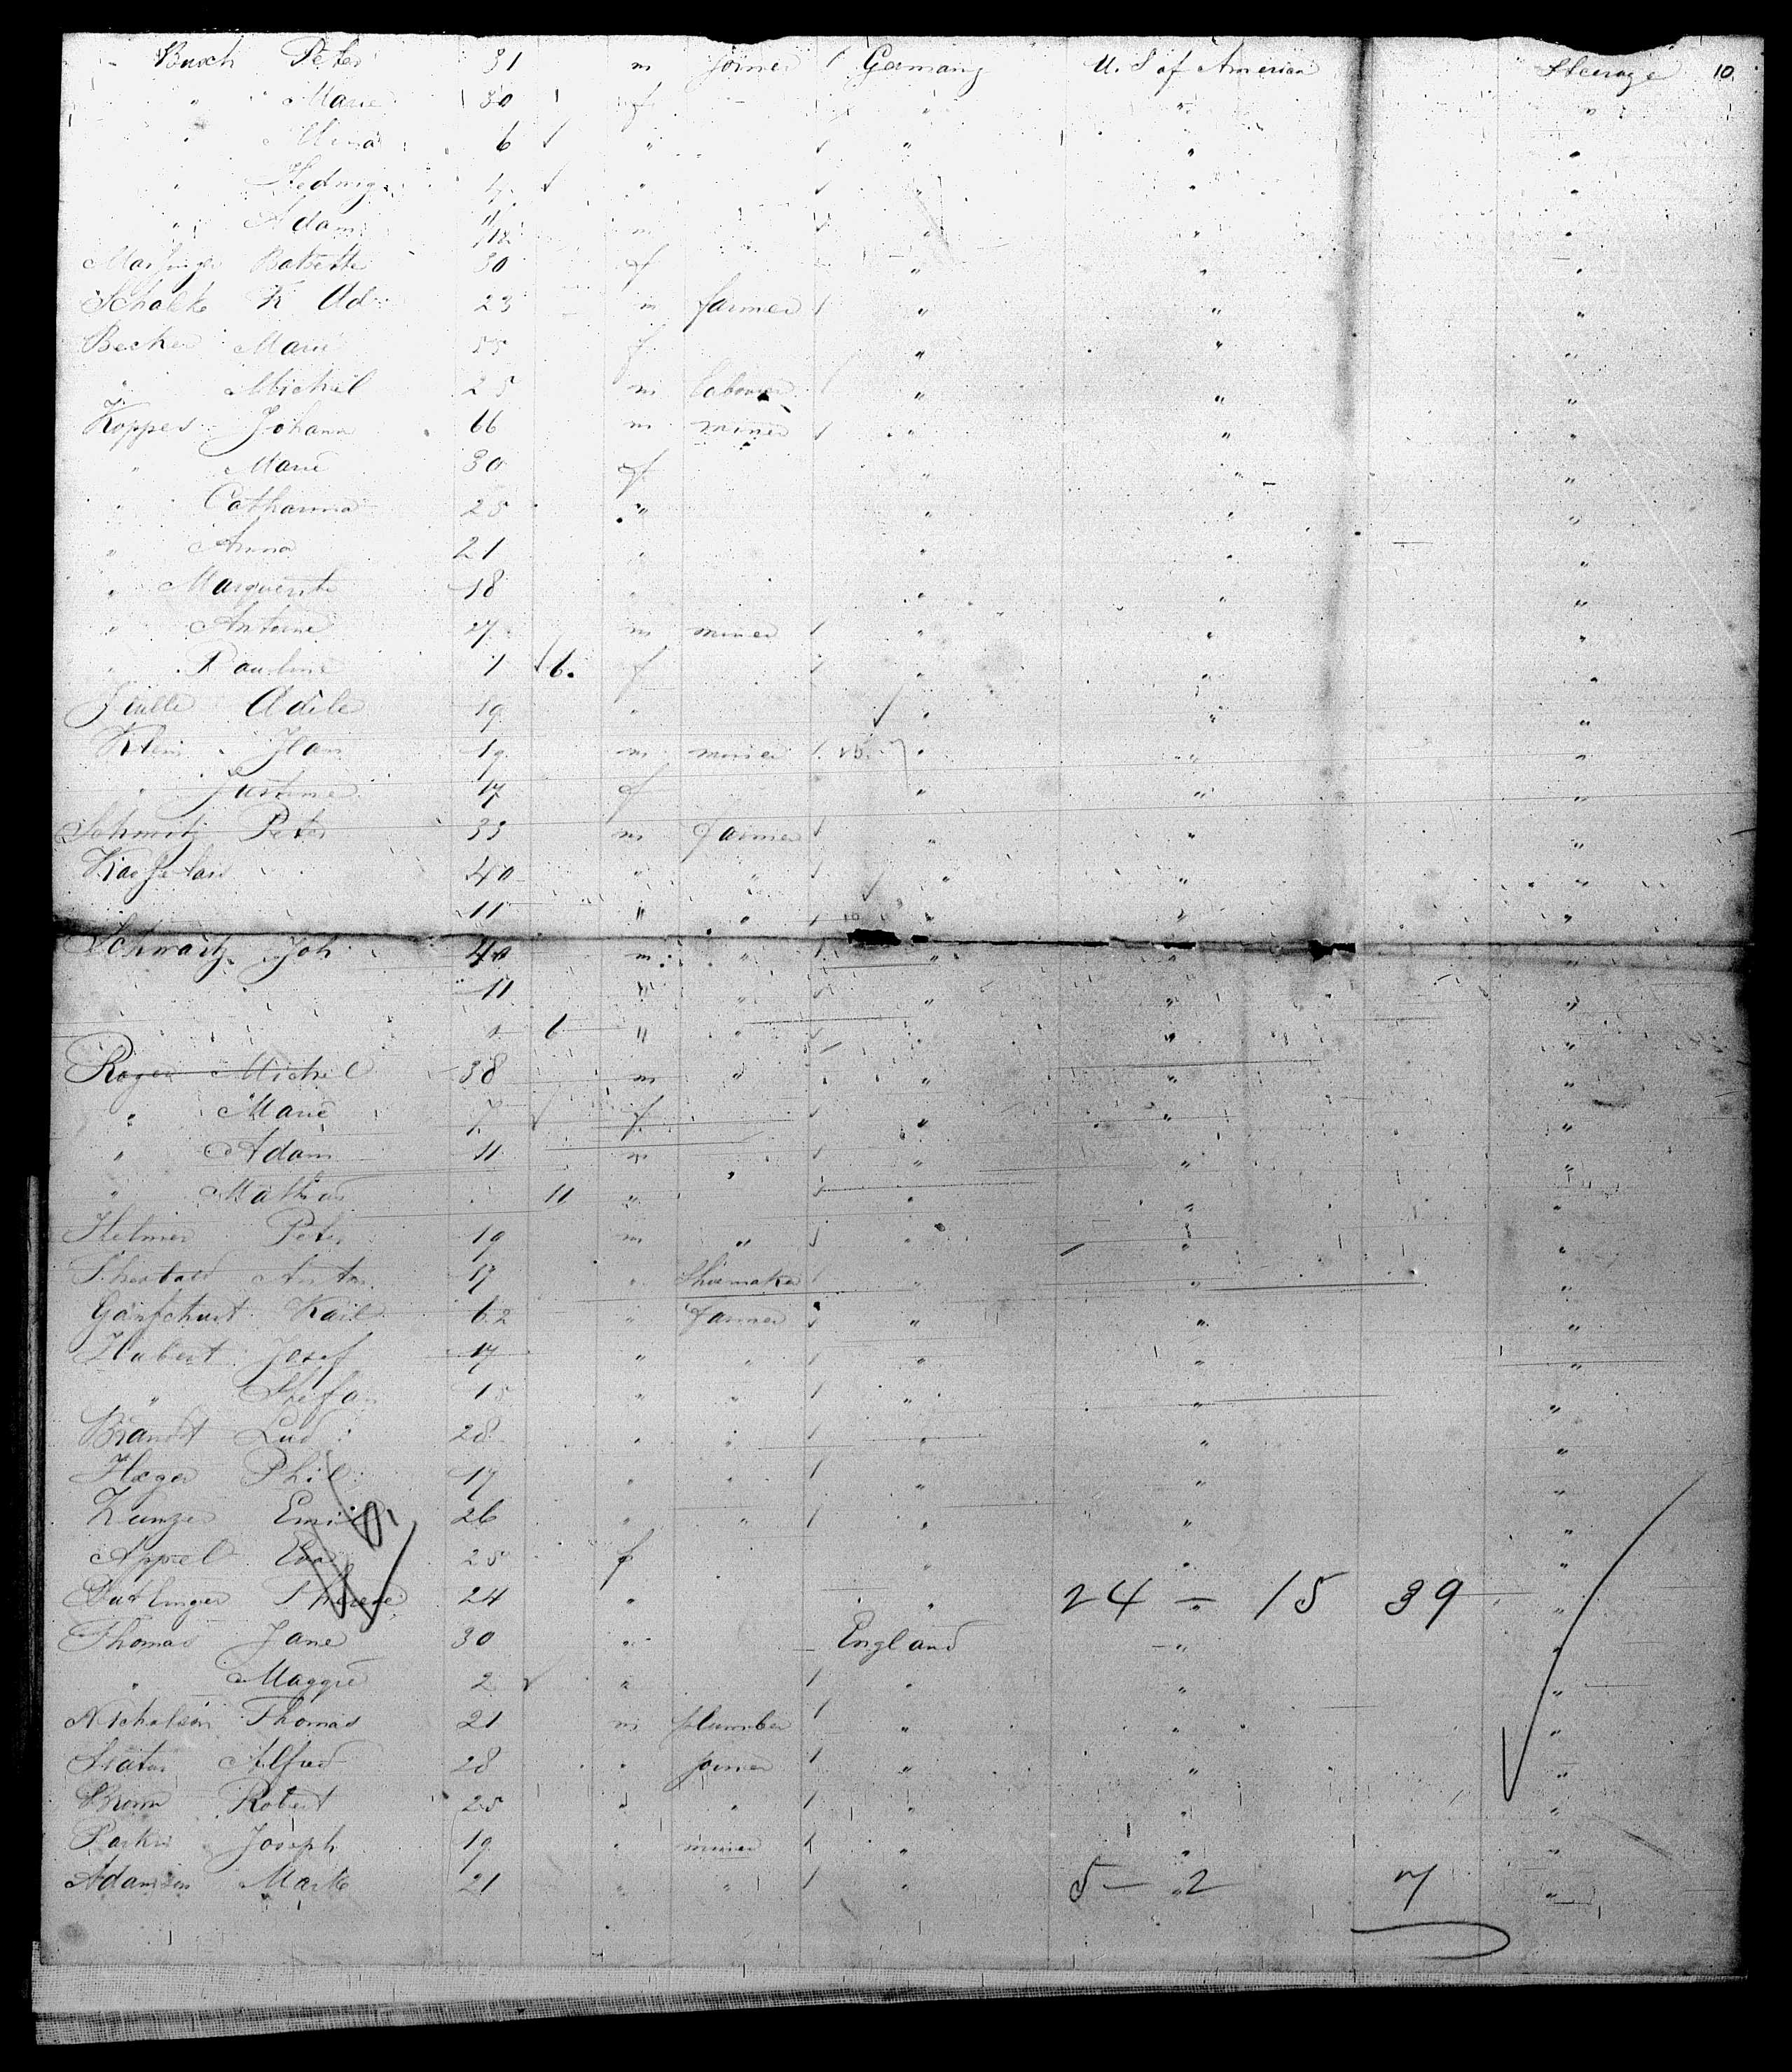 Busch Peter 31 m joiner / Germany U. S of America Steerage 10
" Marie 30 f " " "
" Mina 6 " " " "
" Hedwig 4 " " " "
" Adam 11/12 m " " "
Babette 30 f " " "
Schalk K Ad 23 m farmer " " "
Becker Marie 55 f " " "
" Michel 25 m labourer " " "
Koppes Johann 66 m miner " " "
" Marie 30 f " " "
" Catharina 25 " " " "
" Anna 21 " " " "
" Marguerite 18 " " " "
" Antoine 27 m miner " " "
" Pauline 1 6 f " " "
Adile 19 " " " "
Klein Jean 19 m miner " " "
" Justine 17 f " " "
Schmitz Peter 33 m farmer " " "
40 " " " " "
11 " " " " "
Schwartz Joh 40 m " " " "
11 " " " " "
6 " " " " "
Roger Michel 38 m " " " "
" Marie 7 f " " "
" Adam 11 m " " "
" Mathias 11 " " " " "
Helmer Peter 19 m " " " "
Theobald Anton 17 " Shoemaker " " "
Karl 62 " farmer " " "
Hubert Josef 17 " " " " "
" Stefan 15 " " " " "
Brandt Lud 28 " " " " "
Hæger Phil 17 " " " " "
Kunzer Emil 26 " " " " "
Appel Eva 25 f " " "
Therese 24 " " 24 — 15 39 "
Thomas Jane 30 " England " "
" Maggie 2 " " " "
Nicholson Thomas 21 m plumber " " "
Alfred 28 " joiner " " "
Brown Robert 25 " " " " "
Parkin Joseph 19 " miner " " "
Adamson Mark 21 " " " 5 — 2 7 "